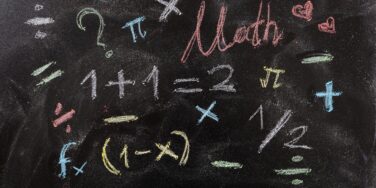 ? π Math
1+1=2 π +
÷ × 1/2
fx (1-x) ÷